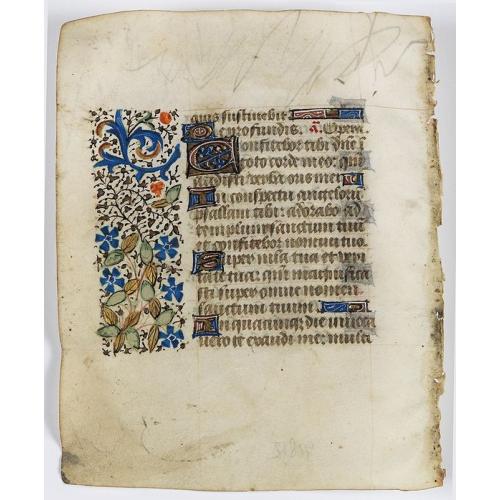 quis sustinebit
De profundis. a. Opera
Confitebor tibi dne i
toto corde meo: qm
audisti verba oris mei
In conspectu angeloru
psallam tibi: adorabo ad
templum sanctum tuu
et confitebor nomini tuo
Super mia tua et veri
tate tua: qm magnifica
sti super omne nomen
sanctum tuum
In quacumque die invoca
vero te exaudi me: multi